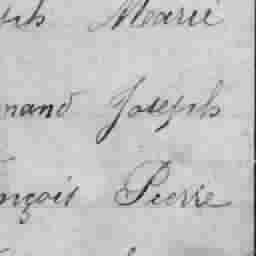 ph Marie
nand Joseph
nçois Pierre